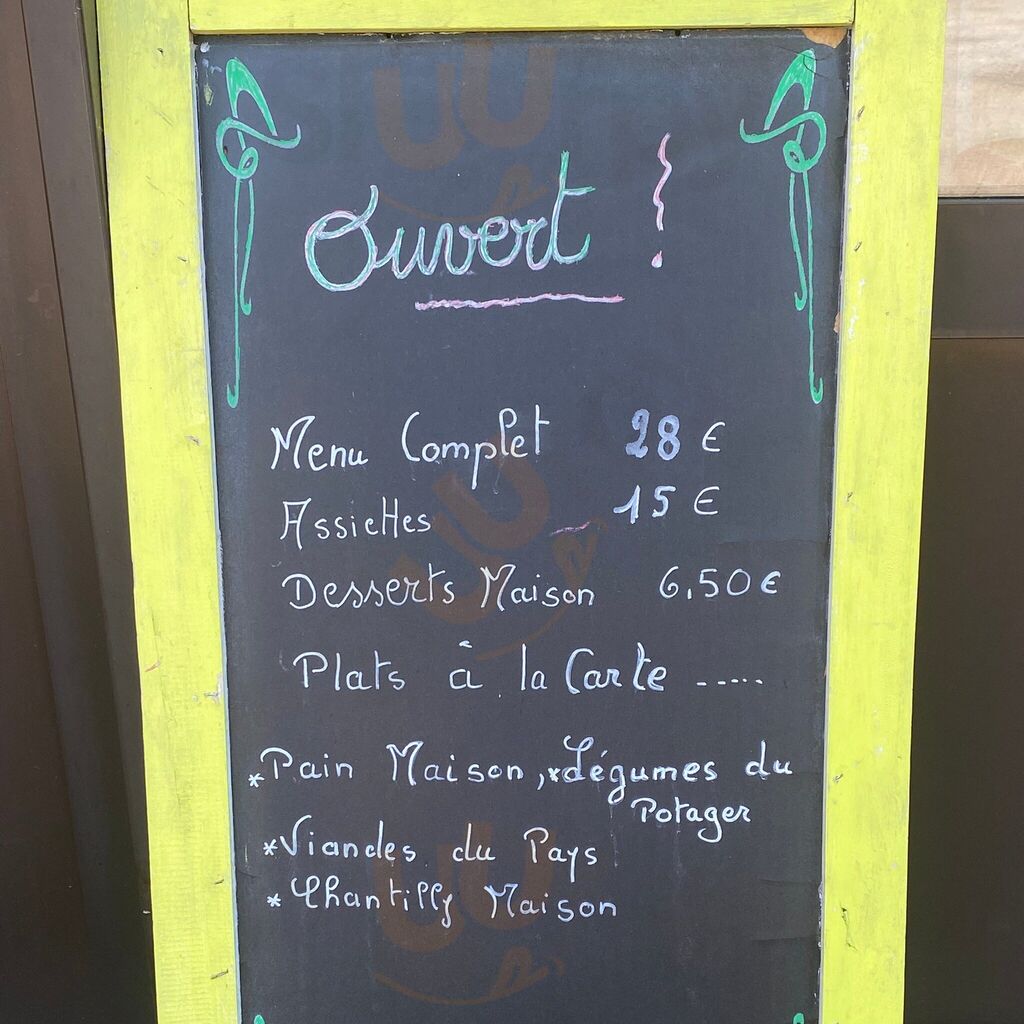 Ouvert !
Menu Complet 28 €
Assiettes 15 €
Desserts Maison 6,50 €
Plats à la Carte .....
*Pain Maison, *Légumes du
Potager
*Viandes du Pays
*Chantilly Maison